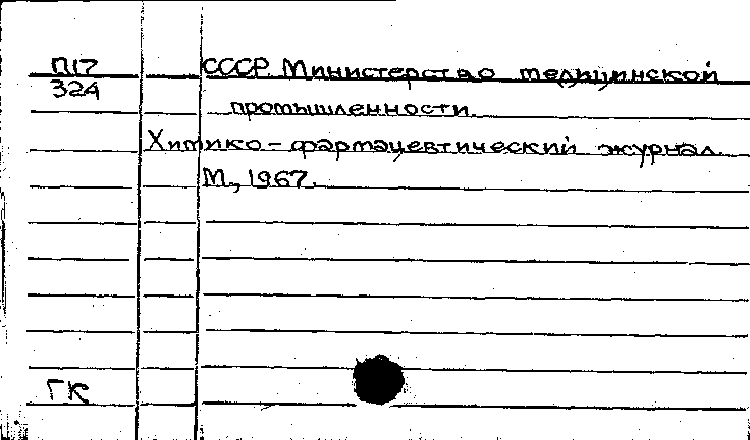 П17 СССР. Министерство медицинской
324 промышленности.
Химико-фармацевтический журнал.
М., 1967.
ГК